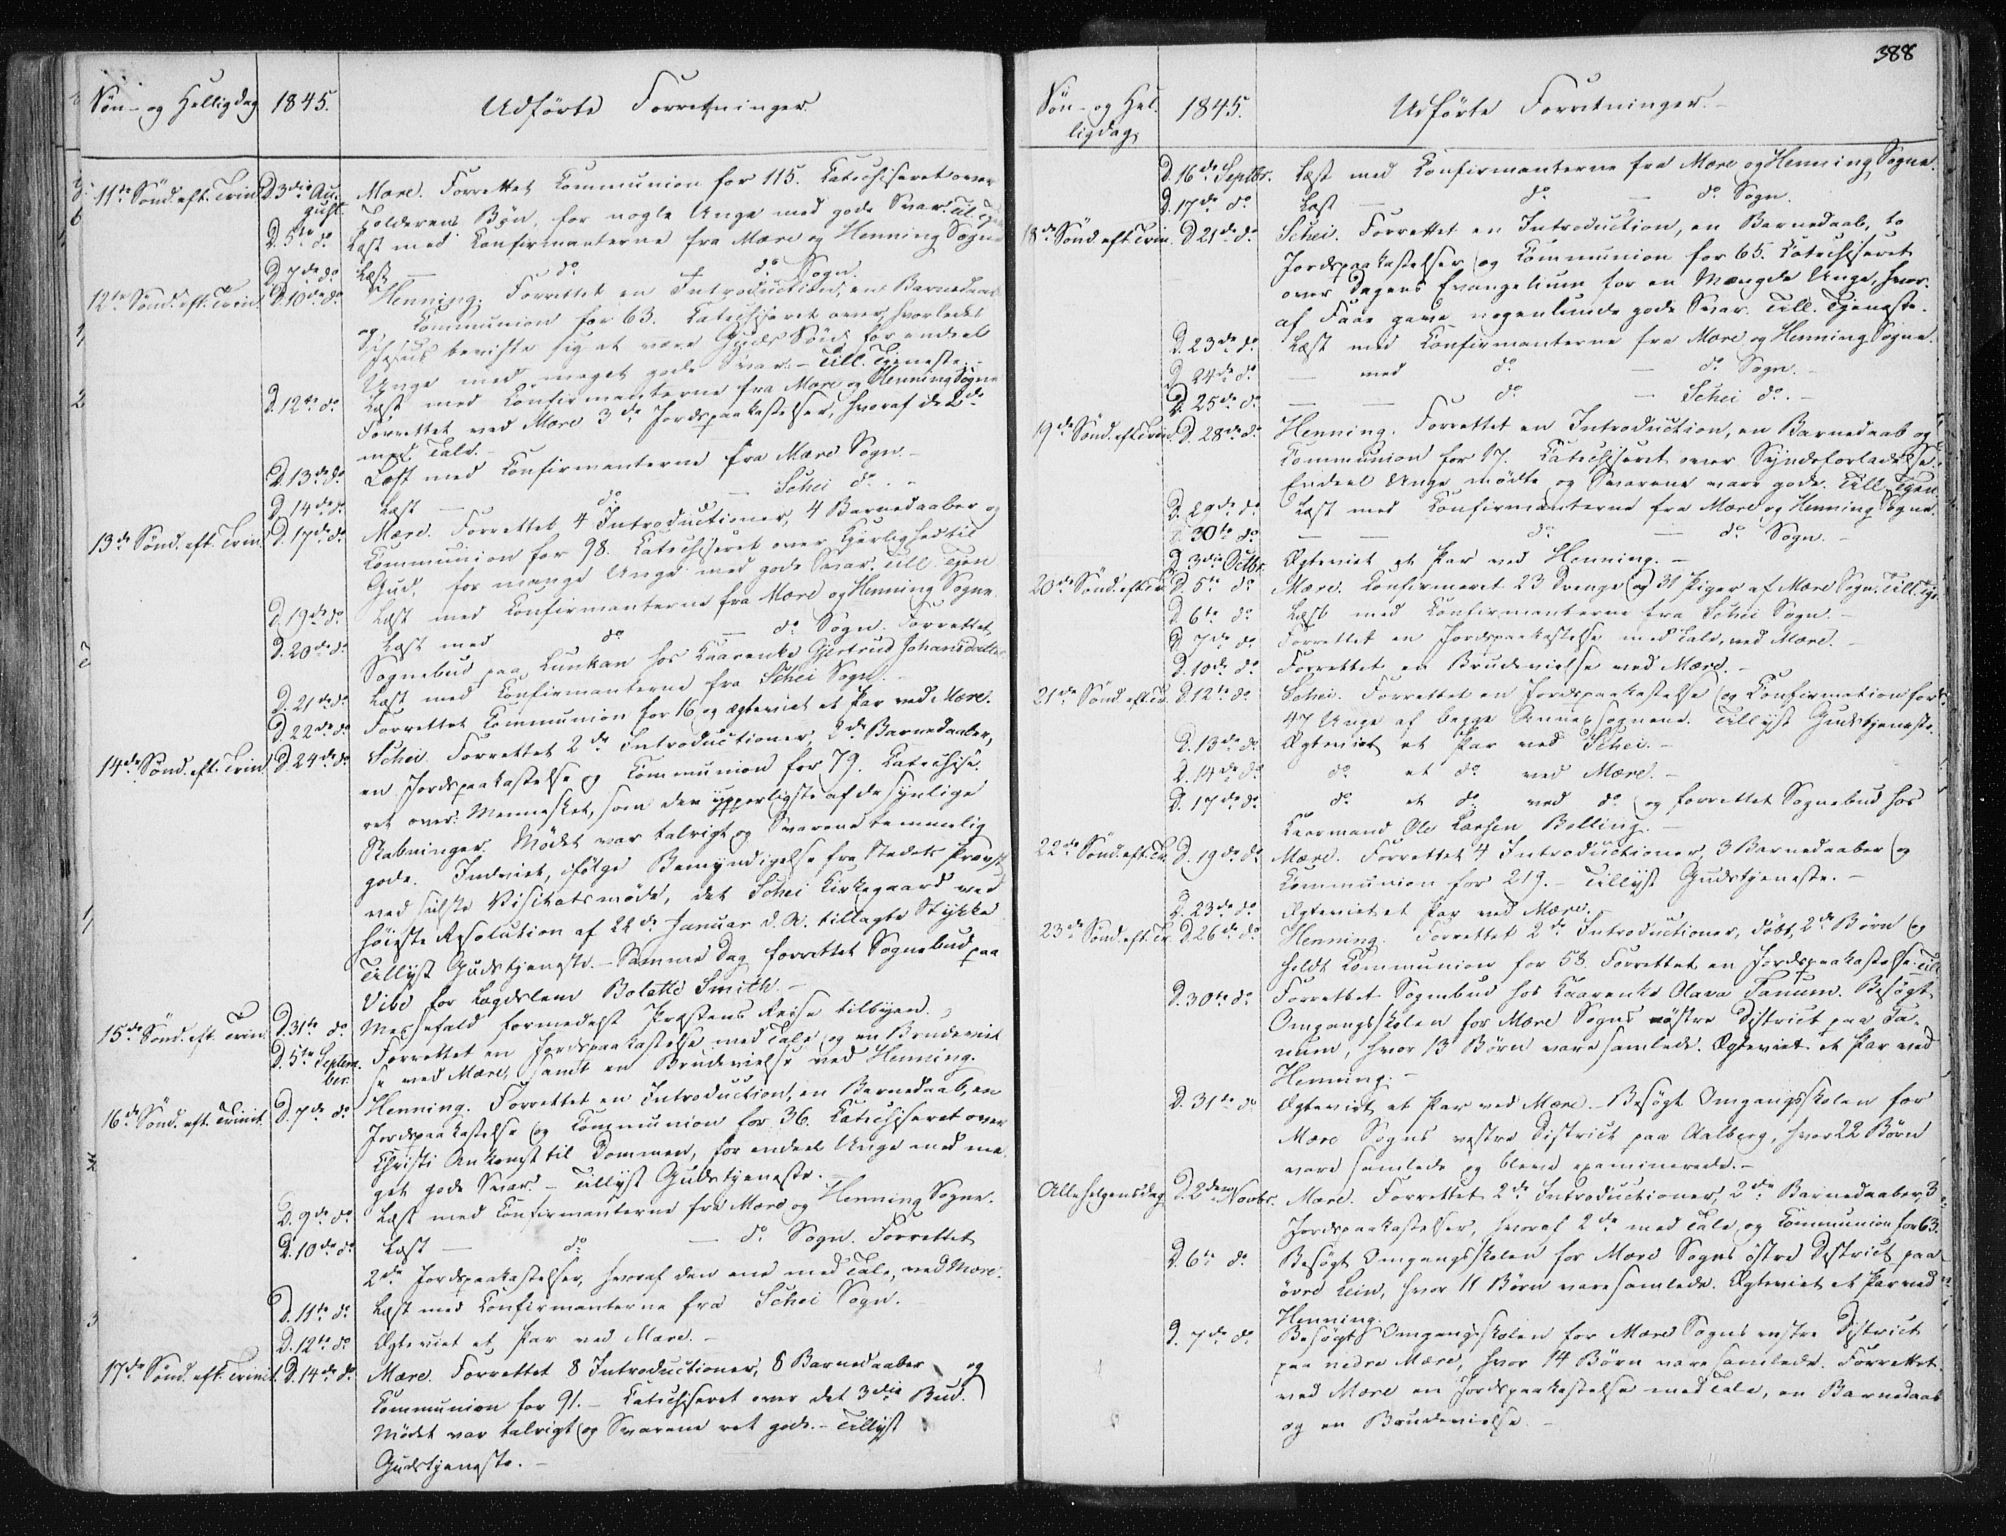 Søn- og Helligdag
1845.
Udførte Forretninger
11te Sønd. eft. Trinit.
D. 3die August
Mære. Forrettet Communion for 115. Catechiseret over
Tolderens Bøn, for nogle Unge med gode Svar. Till. Tjen
D. 5te do
Læst med Confirmanterne fra Mære og Henning Sogne
D. 7de do
Læst — do — do Sogn.
12te Sønd. eft. Trinit.
D. 10de do
Henning. Forrettet en Introduction, en Barnedaab
og Communion for 63. Catechiseret over, hvorledes
Jesus beviste sig at være Guds Søn, for endeel
Unge med meget gode Svar. – Till. Tjeneste. –
D. 12te do
Læst med Confirmanterne fra Mære og Henning Sogne
Forrettet ved Mære 3de Jordspaakastelser, hvoraf de 2de
med Tale. –
D. 13de do
Læst med Confirmanterne fra Mære Sogn. –
D. 14de do
Læst — do — Schei do. –
13de Sønd. eft. Trin.
D. 17de do
Mære. Forrettet 4 Introductioner, 4 Barnedaaber og
Communion for 98. Catechiseret over Kjerlighed til
Gud, for mange Unge med gode Svar. Till. Tjen
D. 19de do
Læst med Confirmanterne fra Mære og Henning Sogne
D. 20de do
Læst med do — do Sogn. Forrettet
Sognebud paa Lunkan hos Kaarenke Gjertrud Johansdatter
D. 21de do
Læst med Confirmanterne fra Schei Sogn. –
D. 22de do
Forrettet Communion for 16 og ægteviet et Par ved Mære.
14de Sønd. eft. Trinit.
D. 24de do
Schei. Forrettet 2de Introductioner, 2de Barnedaaber,
en Jordspaakastelse og Communion for 79. Catechise-
ret over: Mennesket, som den ypperligste af de synlige
Skabninger. Mødet var talrigt og Svarene temmelig
gode. Indviet, ifølge Bemyndigelse fra Stedets Provst
ved sidste Visitatsmøde, det Schei Kirkegaard ved
høieste Resolution af 22de Januar d. A. tillagte Stykke
Tillyst Gudstjeneste. – Samme Dag forrettet Sognebud paa
Vibe for Lægdslem Bolette Smith. –
15de Sønd. eft. Trin.
D. 31te do
Messefald formedelst Præstens Reise tilbyen.
D. 5te September.
Forrettet en Jordspaakastelse med Tale og en Brudeviel-
se ved Mære, samt en Brudevielse ved Henning.
16de Sønd. eft. Trinit.
D. 7de do
Henning. Forrettet en Introduction, en Barnedaab, en
Jordspaakastelse og Communion for 36. Catechiseret over
Christi Ankomst til Dommen, for endeel Unge med me-
get gode Svar. – Tillyst Gudstjeneste. –
D. 9de do
Læst med Confirmanterne fra Mære og Henning Sogne.
D. 10de do
Læst — do — do Sogn. Forrettet
2de Jordspaakastelser, hvoraf den ene med Tale, ved Mære.
D. 11te do
Læst med Confirmanterne fra Schei Sogn.
D. 12te do
Ægteviet et Par ved Mære. –
17de Sønd. eft. Trinit.
D. 14de do
Mære. Forrettet 8 Introductioner, 8 Barnedaaber og
Communion for 91. – Catechiseret over det 3die Bud.
Mødet var talrigt og Svarene ret gode. – Tillyst
Gudstjeneste. –
388
Søn- og Hel-
ligdag
1845.
Udførte Forretninger. –
D. 16de Septbr.
Læst med Confirmanterne fra Mære og Henning Sogne.
D. 17de do
Læst — do — do Sogn.
18de Sønd. eft. Trin.
D. 21de do
Schei. Forrettet en Introduction, en Barnedaab, to
Jordspaakastelser og Communion for 65. Catechiseret
over Dagens Evangelium for en Mængde Unge, hvor-
af Faae gave nogenlunde gode Svar. Till. Tjeneste.
D. 23de do
Læst med Confirmanterne fra Mære og Henning Sogne.
D. 24de do
— med do — do Sogn. –
D. 25de do
— — do — Schei do. –
19de Sønd. eft. Trin.
D. 28de do
Henning. Forrettet en Introduction, en Barnedaab og
Communion for 17. Catechiseret over Syndsforladelse.
Endeel Unge mødte og Svarene vare gode. Till. Tjen.
D. 29de do
Læst med Confirmanterne fra Mære og Henning Sogne.
D. 30te do
— — do — do Sogn. –
D. 3die Octbr.
Ægteviet et Par ved Henning. –
20de Sønd. eft. Tr.
D. 5te do
Mære. Confirmeret 23 Drenge og 31 Piger af Mære Sogn. Till. Tje.
D. 6te do
Læst med Confirmanterne fra Schei Sogn. –
D. 7de do
Forrettet en Jordspaakastelse med Tale, ved Mære. –
D. 10de do
Forrettet en Brudevielse ved Mære. –
21de Sønd. eft. Tr.
D. 12te do
Schei. Forrettet en Jordspaakastelse og Confirmation for
47 Unge af begge Annexsognene. Tillyst Gudstjeneste.
D. 13de do
Ægteviet et Par ved Schei. –
D. 14de do
do et do ved Mære. –
D. 17de do
do et do ved do og forrettet Sognebud hos
Kaarmand Ole Larsen Bolling. –
22de Sønd. eft. Tr.
D. 19de do
Mære. Forrettet 4 Introductioner, 3 Barnedaaber og
Communion for 219. – Tillyst Gudstjeneste. –
D. 23de do
Ægteviet et Par ved Mære. –
23de Sønd. eft. Tr.
D. 26de do
Henning. Forrettet 2de Introductioner, døbt 2de Børn og
holdt Communion for 58. Forrettet en Jordspaakastelse. Till.
D. 30te do
Forrettet Sognebud hos Kaarenke Olava Tanum. Besøgt
Omgangsskolen for Mære Sogns østre District paa Ta-
num, hvor 13 Børn vare samlede. Ægteviet et Par ved
Henning. –
D. 31te do
Ægteviet et Par ved Mære. – Besøgt Omgangsskolen for
Mære Sogns vestre District paa Aalberg, hvor 22 Børn
vare samlede og bleve examinerede. –
Allehelgensdag
D. 2den Novbr.
Mære. Forrettet 2de Introductioner, 2de Barnedaaber, 3
Jordspaakastelser, hvoraf 2de med Tale, og Communion for 63.
D. 6te do
Besøgt Omgangsskolen for Mære Sogns østre District paa
øvre Lein, hvor 11 Børn vare samlede. Ægteviet et Par ved
Henning.
D. 7de do
Besøgt Omgangsskolen for Mære Sogns vestre District
paa nedre Mære, hvor 14 Børn vare samlede. Forrettet
ved Mære en Jordspaakastelse med Tale, en Barnedaab
og en Brudevielse. –